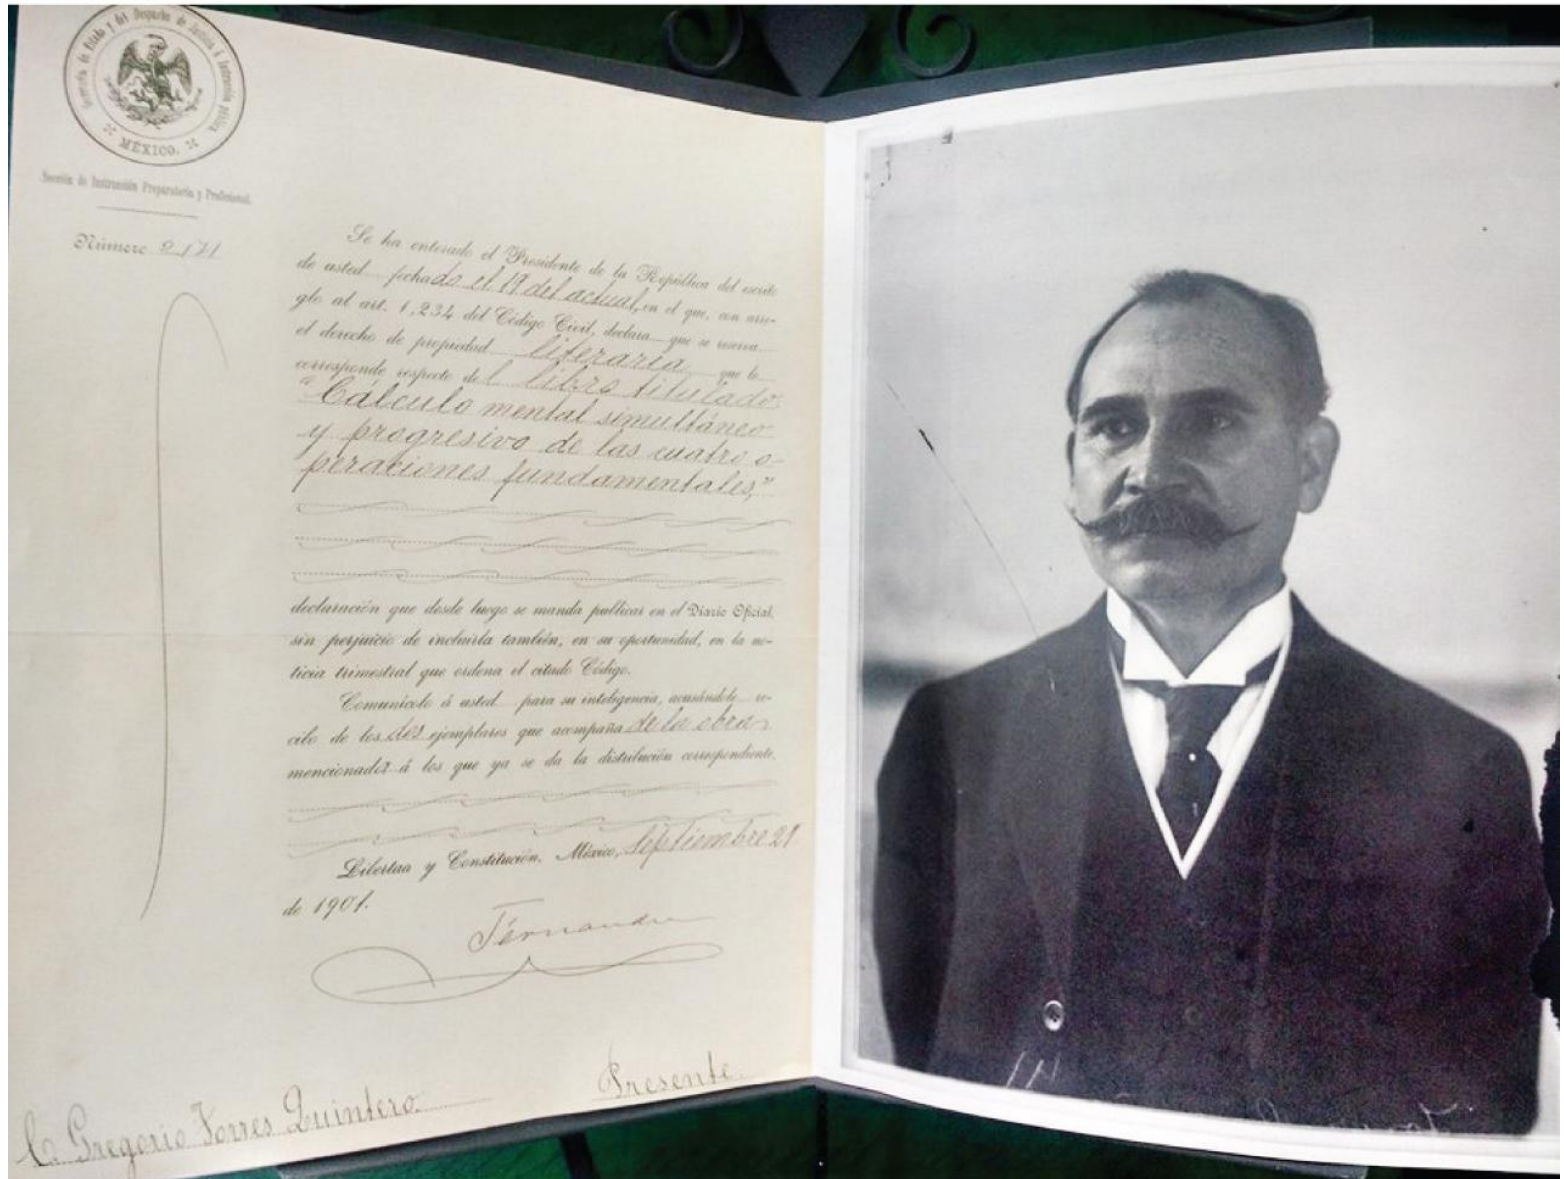 Secretaría de Estado y del Despacho de Justicia é Instrucción pública
MÉXICO.
Sección de Instrucción Preparatoria y Profesional.
Número 2171
Se ha enterado el Presidente de la República del escrito
de usted fechado el 19 del actual, en el que, con arre-
glo al art. 1,234 del Código Civil, declara que se reserva
el derecho de propiedad literaria que le
corresponde respecto del libro titulado
"Cálculo mental simultáneo
y progresivo de las cuatro o-
peraciones fundamentales,"
declaración que desde luego se manda publicar en el Diario Oficial,
sin perjuicio de incluirla también, en su oportunidad, en la no-
ticia trimestral que ordena el citado Código.
Comunícolo á usted para su inteligencia, acusándole re-
cibo de los dos ejemplares que acompaña de la obra
mencionada á los que ya se da la distribución correspondiente.
Libertad y Constitución. México, Septiembre 21
de 1901.
Fernandez
C. Gregorio Torres Quintero. Presente.